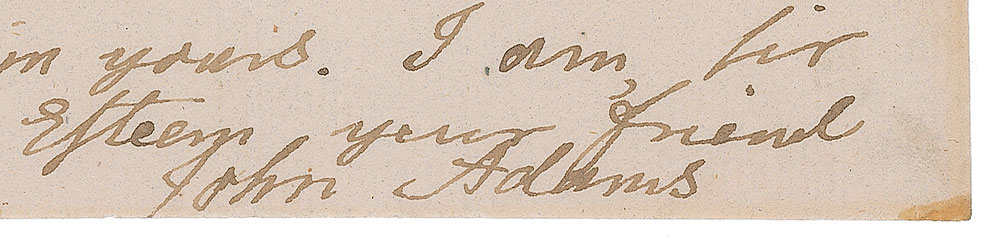 in yours. I am, ſir
Eſteem, your friend
John Adams